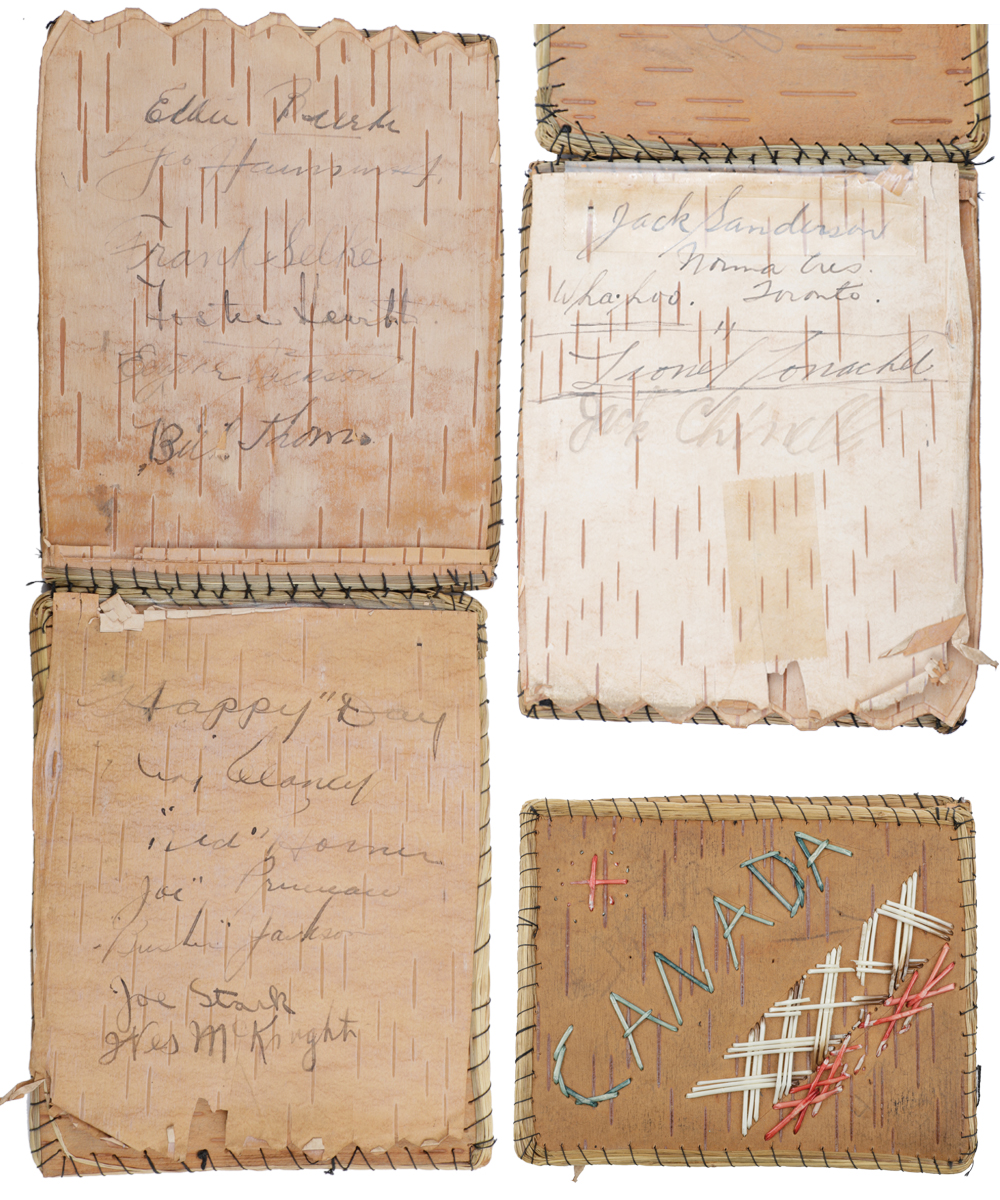 Frank Selke
Foster Hewitt
"Bill" Thoms.
Happy" Day
King Clancy
"Red" Horner
Joe" Primeau
"Busher" Jackson
Joe Stark
Wes McKnight
Jack Sanderson
Norma Cres.
Wha-hoo. Toronto.
Lionel Conacher
Jack
CANADA